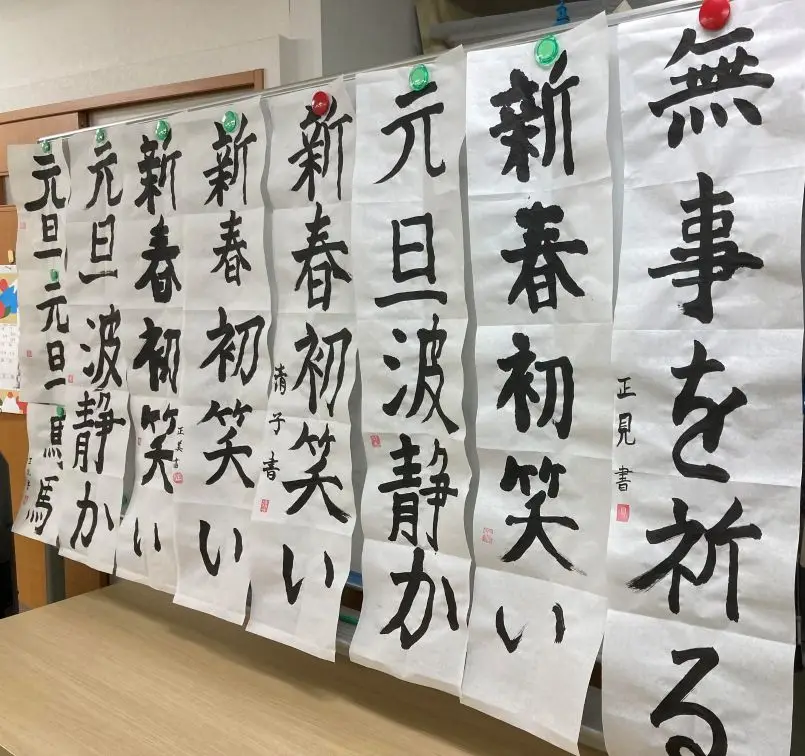 無事を祈る
正見書
新春初笑い
元旦波静か
新春初笑い
清子書
新春初笑い
正美書
新春初笑い
元旦波静か
元旦
元旦
馬
馬